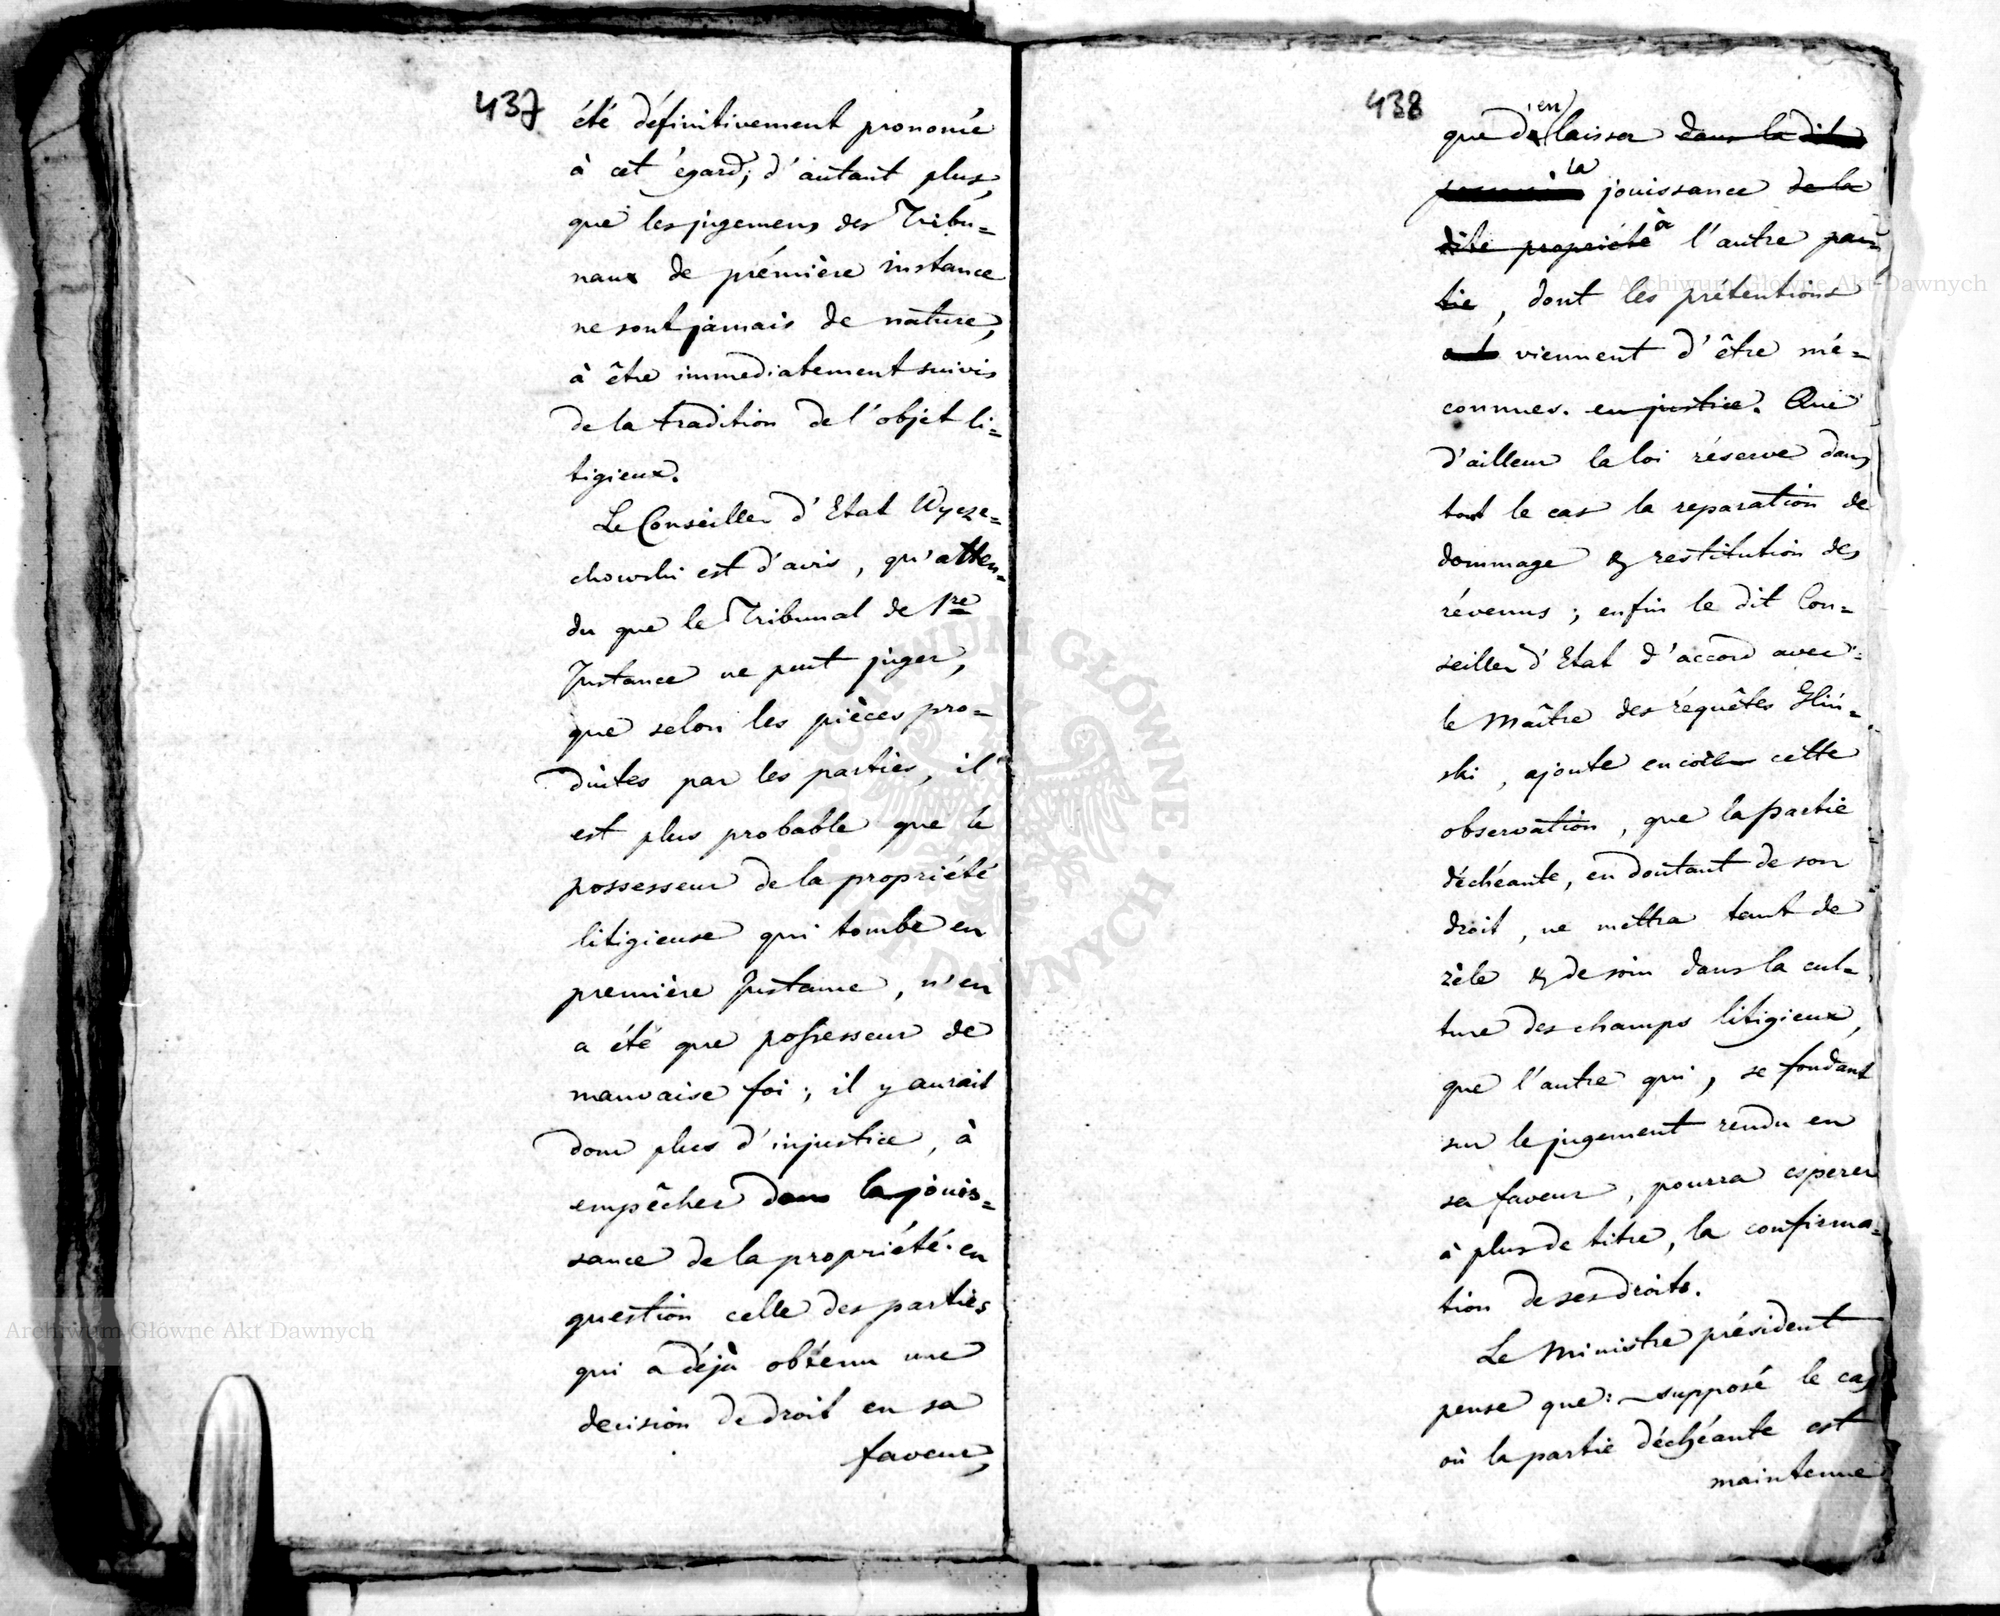 437
été définitivement prononcé
à cet égard, d'autant plus,
que les jugemens des Tribu=
naux de prémière instance
ne sont jamais de nature,
à être immediatement suivis
de la tradition de l'objet li=
tigieux.
Le Conseiller d'Etat Wycze=
chowski est d'avis, qu'atten=
du que le Tribunal de 1re
Instance ne peut juger,
que selon les pièces pro=
duites par les parties, il
est plus probable que le
possesseur de la propriété
litigieuse qui tombe en
première Instance, n'en
a été que possesseur de
mauvaise foi; il y aurait
donc plus d'injustice, à
empêcher dans la jouis=
sance de la propriété en
question celle des parties
qui a déjà obtenu une
decision de droit en sa
faveur,
438
que d'en laisser dans la dite
la jouissance de la
dite propriété à l'autre par=
tie, dont les prétentions
viennent d'être mé=
connues. en justice. Que
d'ailleur la loi réserve dans
tout le cas la reparation de
dommage & restitution des
révenus; enfin le dit Con=
seiller d'Etat d'accord avec
le Maître des réquêtes Gliń=
ski, ajoute encore cette
observation, que la partie
déchéante, en doutant de son
droit, ne mettra tant de
zèle & de soin dans la cul=
ture des champs litigieux,
que l'autre qui, se fondant
sur le jugement rendu en
sa faveur, pourra esperer
à plus de titre, la confirma=
tion de ses droits.
Le Ministre président
pense que: supposé le cas
où la partie déchéante est
maintenue
Archiwum Główne Akt Dawnych
Archiwum Główne Akt Dawnych
ARCHIWUM GŁÓWNE AKT DAWNYCH